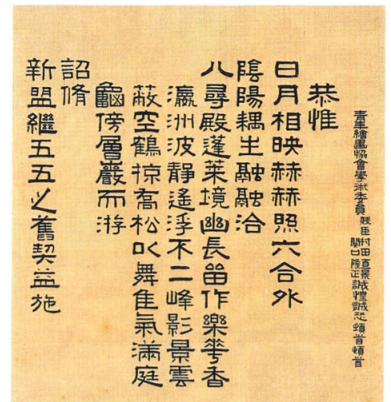 青年繪畫協會學術委員 賤臣 村田直景 關口隆正 誠惶誠恐頓首頓首
恭惟
日月相映赫赫照六合外
陰陽耦生融融洽
八尋殿蓬萊境幽長畱作樂華香
瀛洲波靜遙浮不二峰影景雲
蔽空鶴掠喬松以舞佳氣滿庭
龜傍層巖而游
詔脩
新盟繼五五之舊契益施